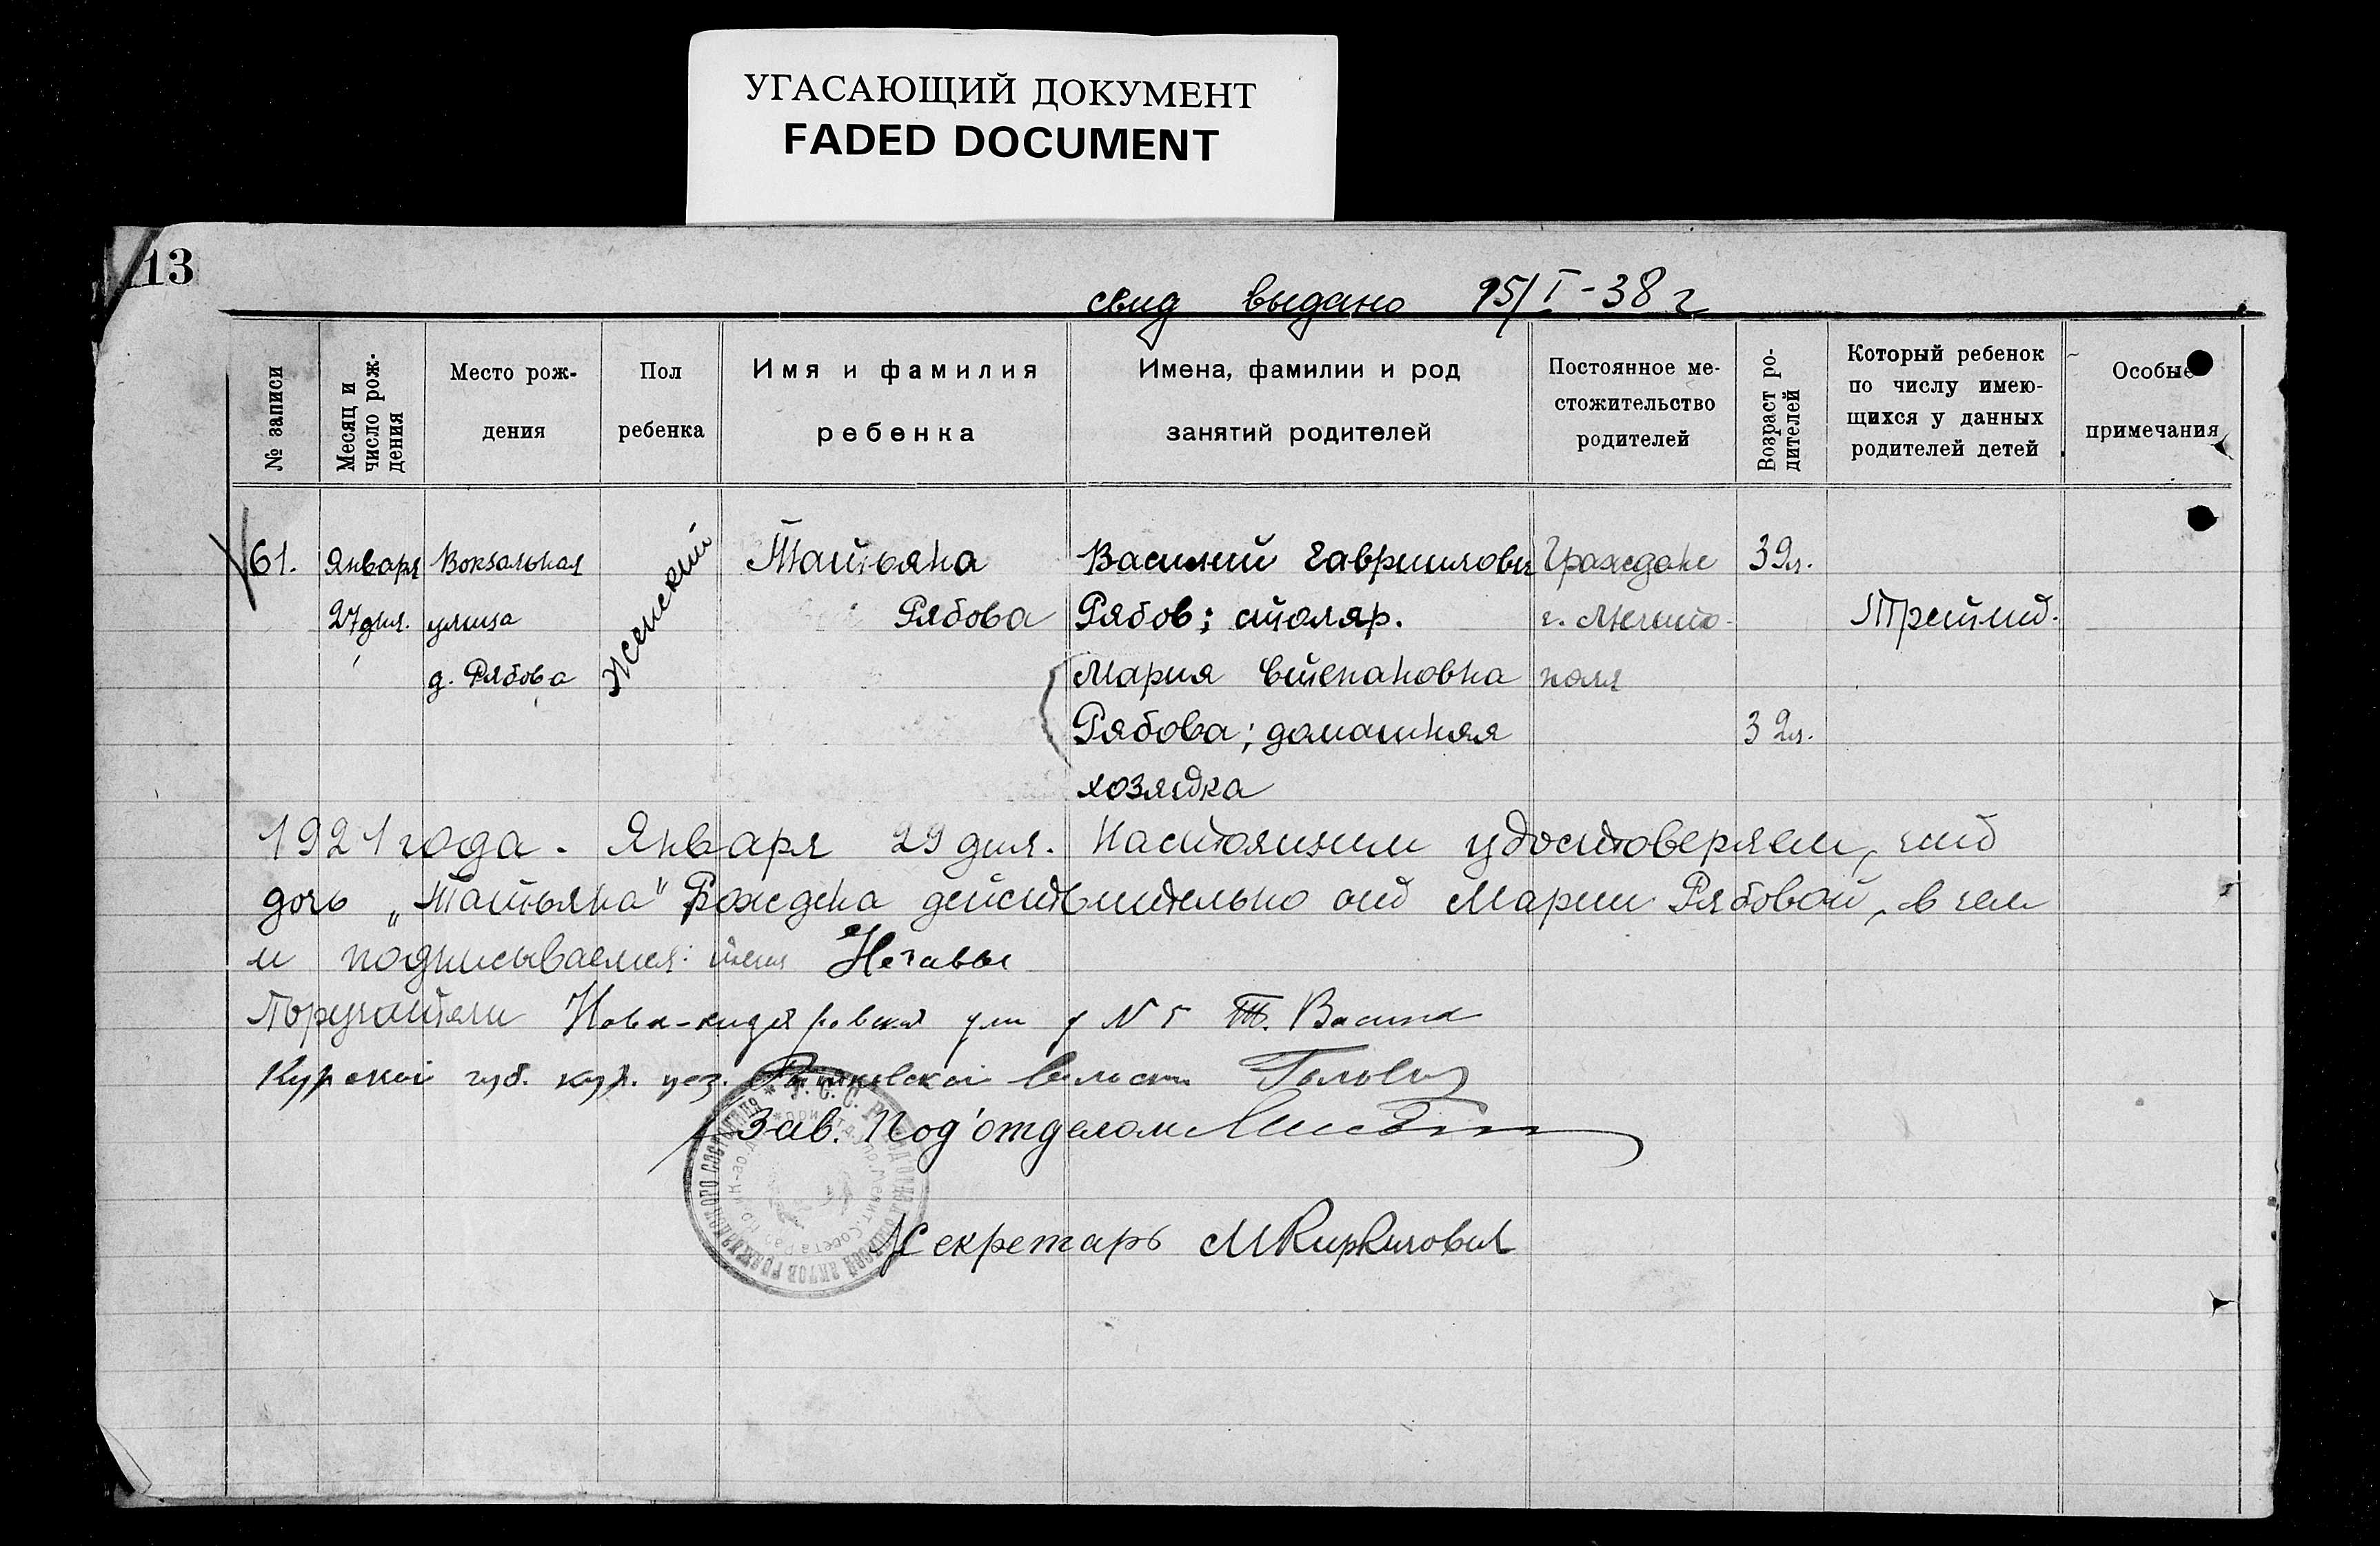 УГАСАЮЩИЙ ДОКУМЕНТ
FADED DOCUMENT
13
свид выдано 15/I-38 г
№ записи
Месяц и
число рож-
дения
Место рож-
дения
Пол
ребенка
Имя и фамилия
ребенка
Имена, фамилии и род
занятий родителей
Постоянное ме-
стожительство
родителей
Возраст ро-
дителей
Который ребенок
по числу имею-
щихся у данных
родителей детей
Особые
примечания
61.
Января
27 дня.
Вокзальная
улица
д. Рябова
Женский
Татьяна
Рябова
Василий Гаврилович
Рябов; столяр.
Мария Степановна
Рябова; домашняя
хозяйка
Граждане
г. Мелито-
поля
32л.
32л.
Третий.
1921 года. Января 29 дня. Настоящим удостоверяем, что
дочь „Татьяна" Рождена действительно от Марии Рябовой, в чем
и подписываемся:
Поручители № 5 Т. Васина
Курской губ. кур. уез. волости
Зав. Под'отделом
Секретарь